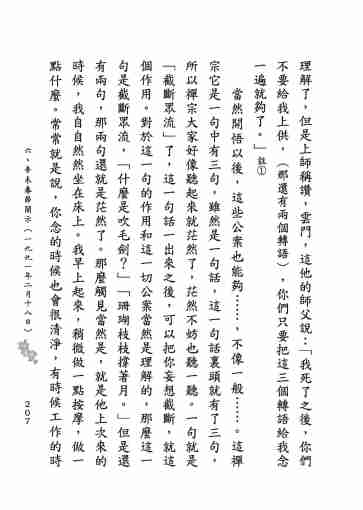 理解了，但是上師稱讚，雲門，這他的師父說：「我死了之後，你們
不要給我上供，（那還有兩個轉語），你們只要把這三個轉語給我念
一遍就夠了。」註①
當然開悟以後，這些公案也能夠……，不像一般……。這禪
宗它是一句中有三句。雖然是一句話，這一句話裏頭就有了三句，
所以禪宗大家好像聽起來就茫然了，茫然不妨也聽一聽。一句就是
「截斷眾流」了，這一句話一出來之後，可以把你妄想截斷，就這
個作用。對於這一句的作用和這一切公案當然是理解的，那麼這一
句是截斷眾流，「什麼是吹毛劍？」「珊瑚枝枝撐著月。」但是還
有兩句，那兩句還就是茫然了。那麼觸見當然是，就是他上次來的
時候，我自自然然坐在床上。我早上起來，稍微做一點按摩，做一
點什麼。常常就是說，你念的時候也會很清淨，有時候工作的時
六、辛未春節開示（一九九一年二月十八日）
207